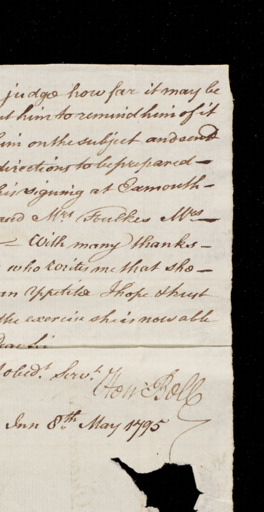 judge how far it may be
him to remind him of it
him on the subject and send
directions to be prepared —
his signing at Exmouth —
and Mrs Foulkes Mrs —
— With many thanks —
who writes me that she —
an appetite I hope & trust
the exercise she is now able
Dear Sir
obedt. Servt.
Inn 8th. May 1795